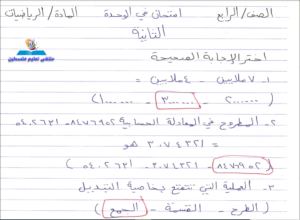 الصف/الرابع امتحان في الوحدة المادة/الرياضيات
الثانية
ملتقى تعليم فلسطين
اختر الإجابة الصحيحة
١- ٧ ملايين - ٤ ملايين =
٢- المطروح في المعادلة الحسابية ٨٤٧٦٩٥٢ - ٥٤٠٢٦٢١
= ٣٠٧٤٣٣١ هو
(٨٤٧٦٩٥٢ - ٣٠٧٤٣٣١ - ٥٤٠٢٦٢١)
٣- العملية التي تتمتع بخاصية التبديل
(الطرح - القسمة - الجمع)